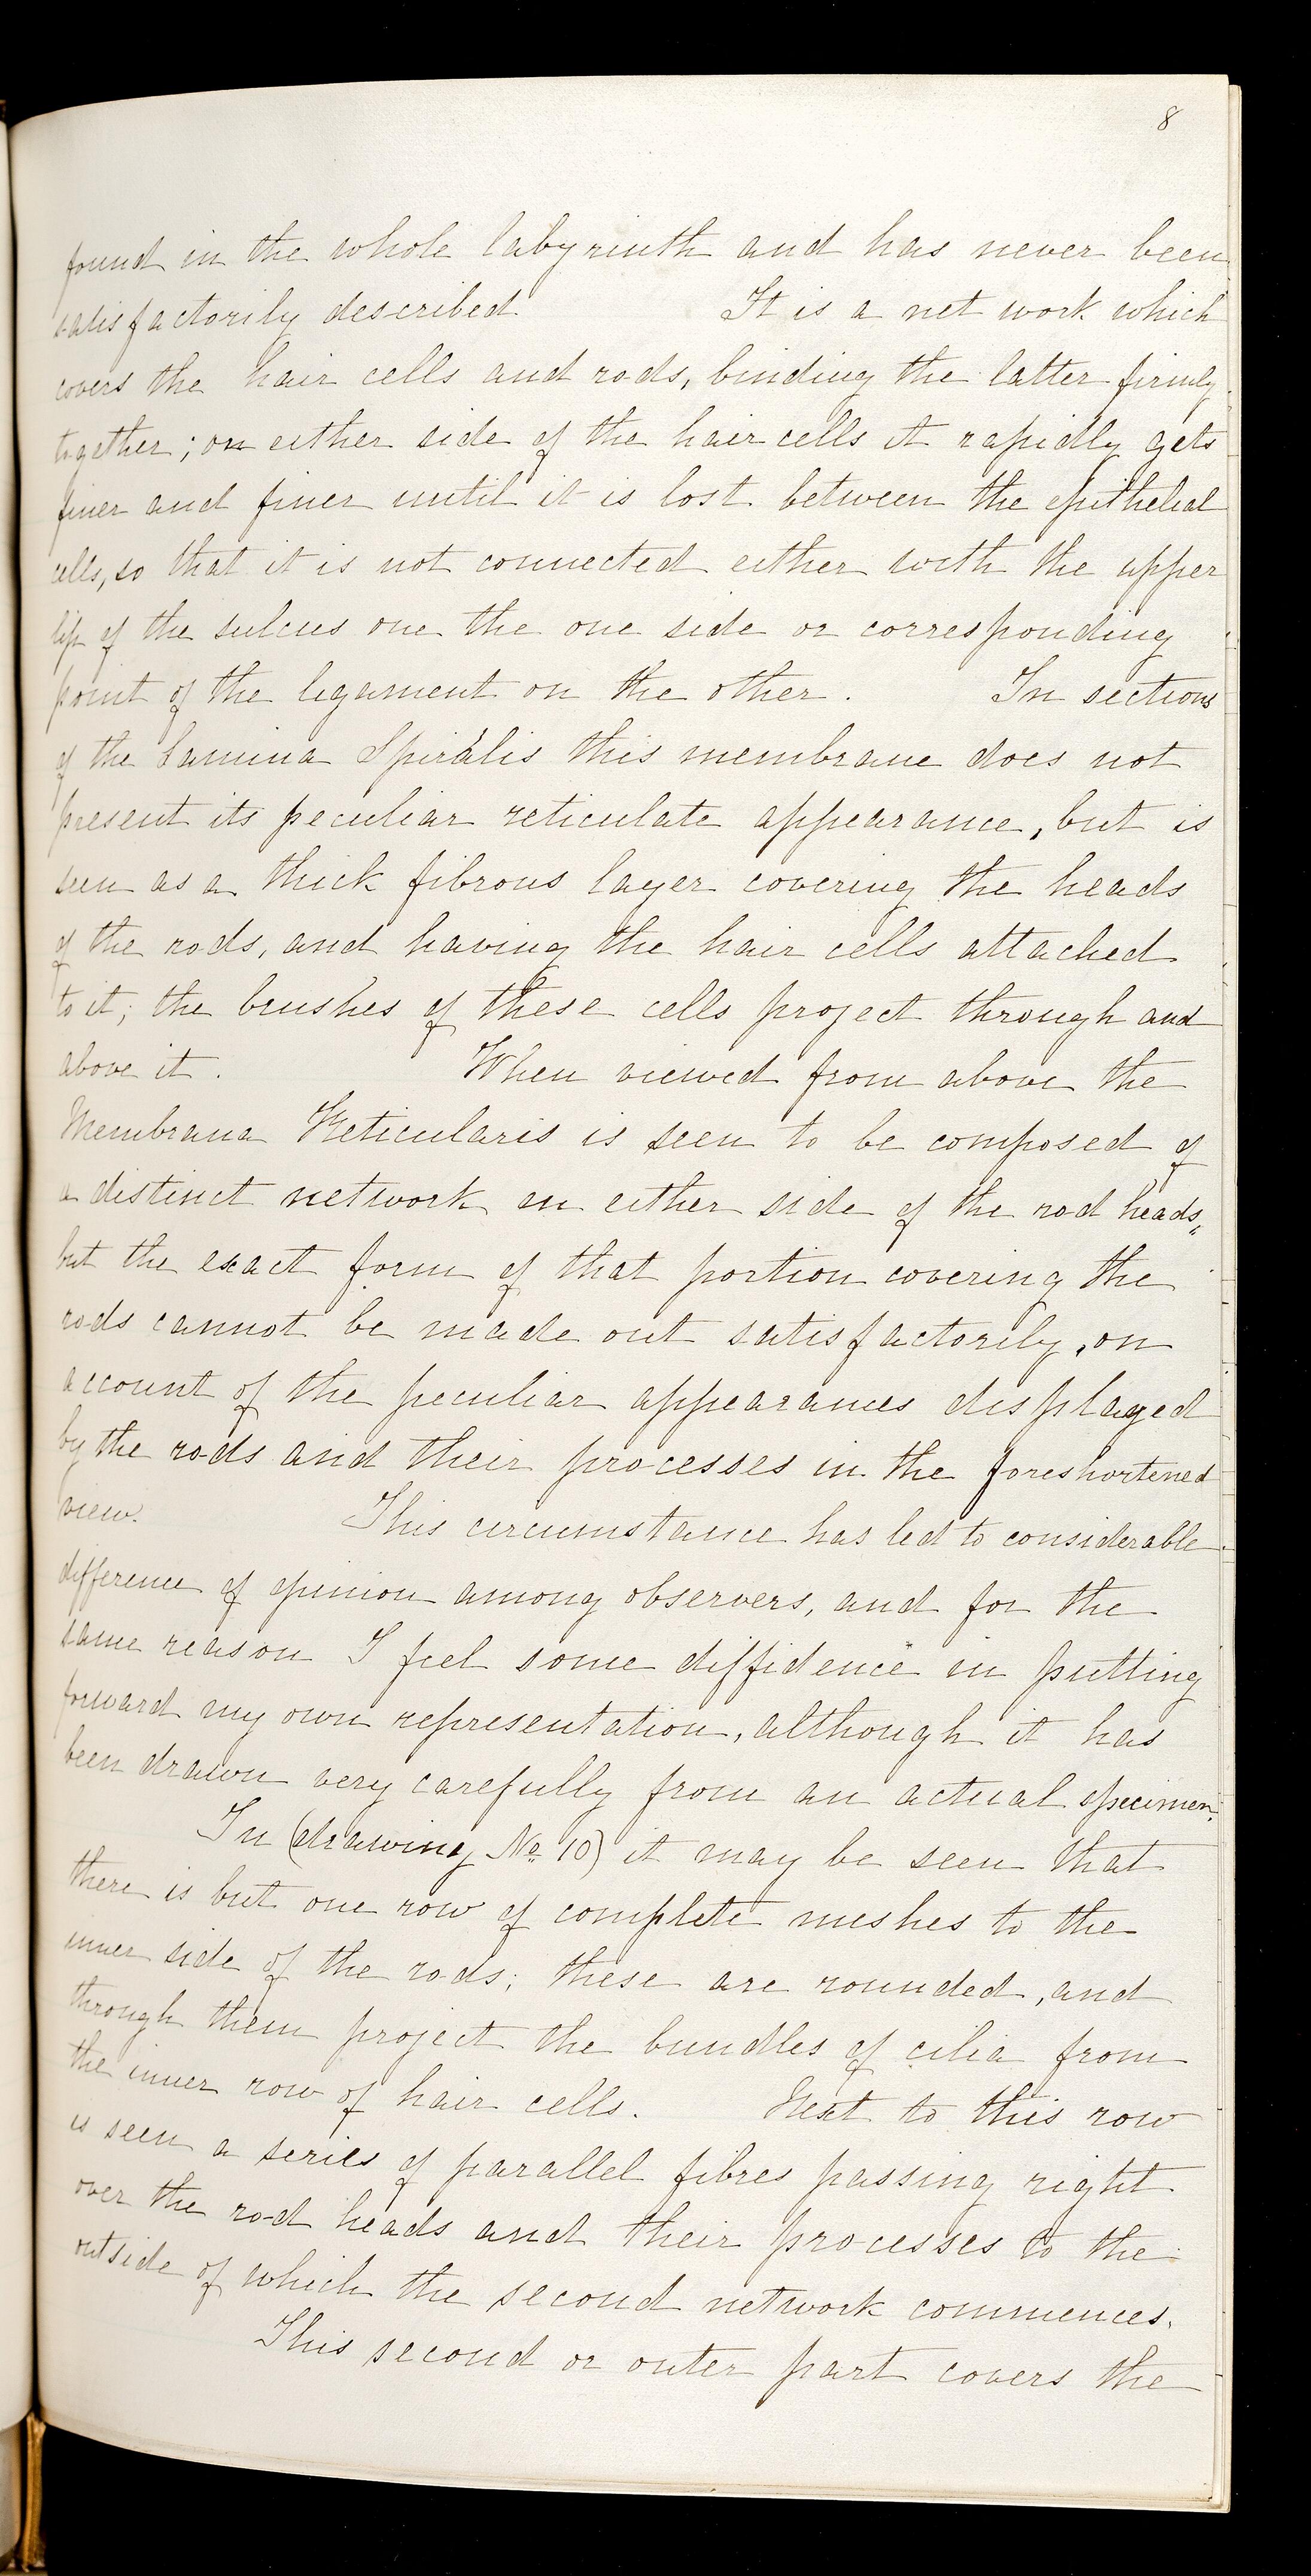 8
found in the whole labyrinth and has never been
satisfactorily described. It is a net work which
covers the hair cells and rods, binding the latter firmly
together; on either side of the hair cells it rapidly gets
finer and finer until it is lost between the epithelial
cells, so that it is not connected either with the upper
lip of the sulcus one the one side or corresponding
point of the ligament on the other. In sections
of the Lamina Spiralis this membrane does not
present its peculiar reticulate appearance, but is
seen as a thick fibrous layer covering the heads
of the rods, and having the hair cells attached
to it; the brushes of these cells project through and
above it. When viewed from above the
Membrana Reticularis is seen to be composed of
a distinct network on either side of the rod heads,
but the exact form of that portion covering the
rods cannot be made out satisfactorily, on
account of the peculiar appearances displayed
by the rods and their processes in the foreshortened
view. This circumstance has led to considerable
difference of opinion among observers, and for the
same reason I feel some diffidence in putting
forward my own representation, although it has
been drawn very carefully from an actual specimen.
In (drawing No. 10) it may be seen that
there is but one row of complete meshes to the
inner side of the rods; these are rounded, and
through them project the bundles of cilia from
the inner row of hair cells. Next to this row
is seen a series of parallel fibres passing right
over the rod heads and their processes to the
outside of which the second network commences.
This second or outer part covers the